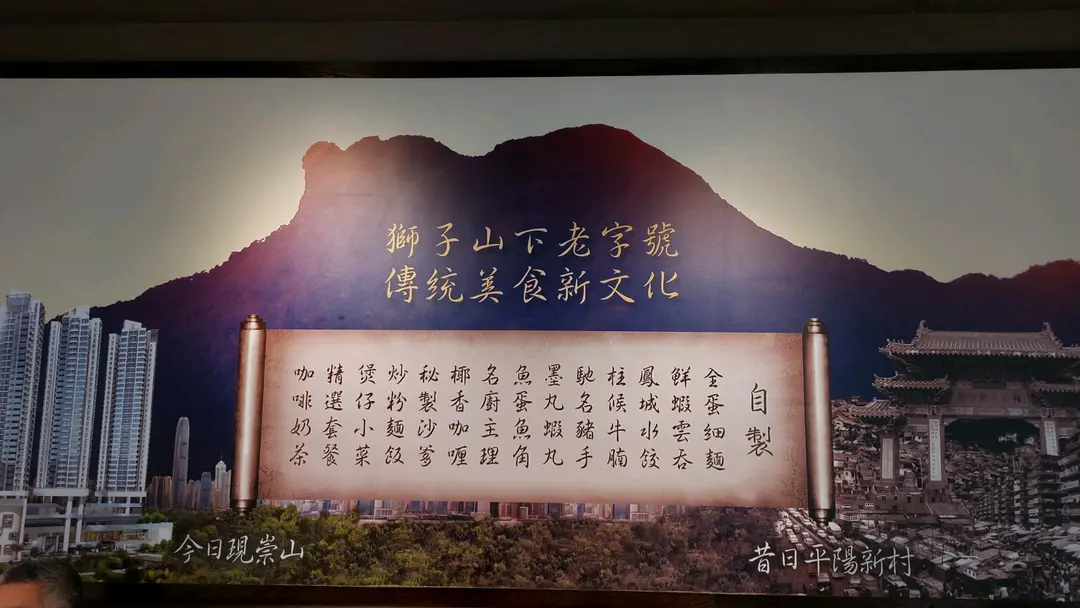 獅子山下老字號
傳統美食新文化
自製
全蛋細麵
鮮蝦雲吞
鳳城水餃
柱候牛腩
馳名豬手
墨丸蝦丸
魚蛋魚角
名廚主理
椰香咖喱
秘製沙爹
炒粉麵飯
煲仔小菜
精選套餐
咖啡奶茶
今日現崇山
昔日平陽新村